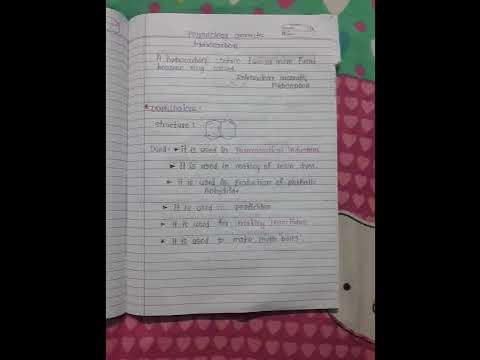 Polynuclear aromatic
Hydrocarbon
A hydrocarbon contain two or more fused
benzene ring called
Polynuclear aromatic
Hydrocarbon
Naphthalene:
Structure:
Used: It is used in Pharmaceutical industries
It is used in making of resin, dyes.
It is used in Production of phthalic
It is used in pesticides
It is used for making
It is used to make moth balls.